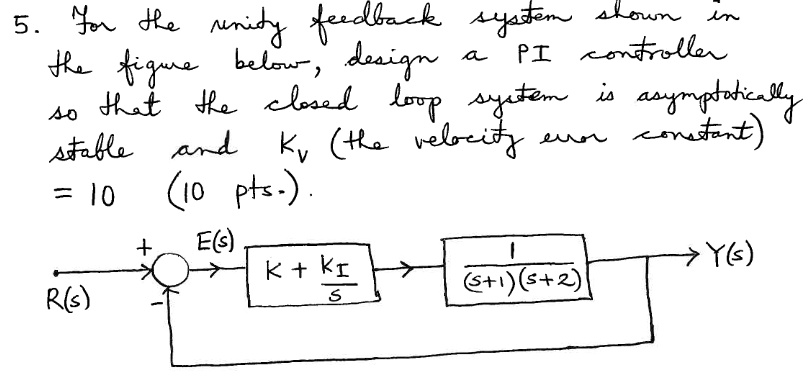 5. For the unity feedback system shown in
the figure below, design a PI controller
so that the closed loop system is asymptotically
stable and Kv (the velocity error constant)
= 10 (10 pts.).
+ E(s)
R(s)
-
K + KI/s
1/(s+1)(s+2)
Y(s)